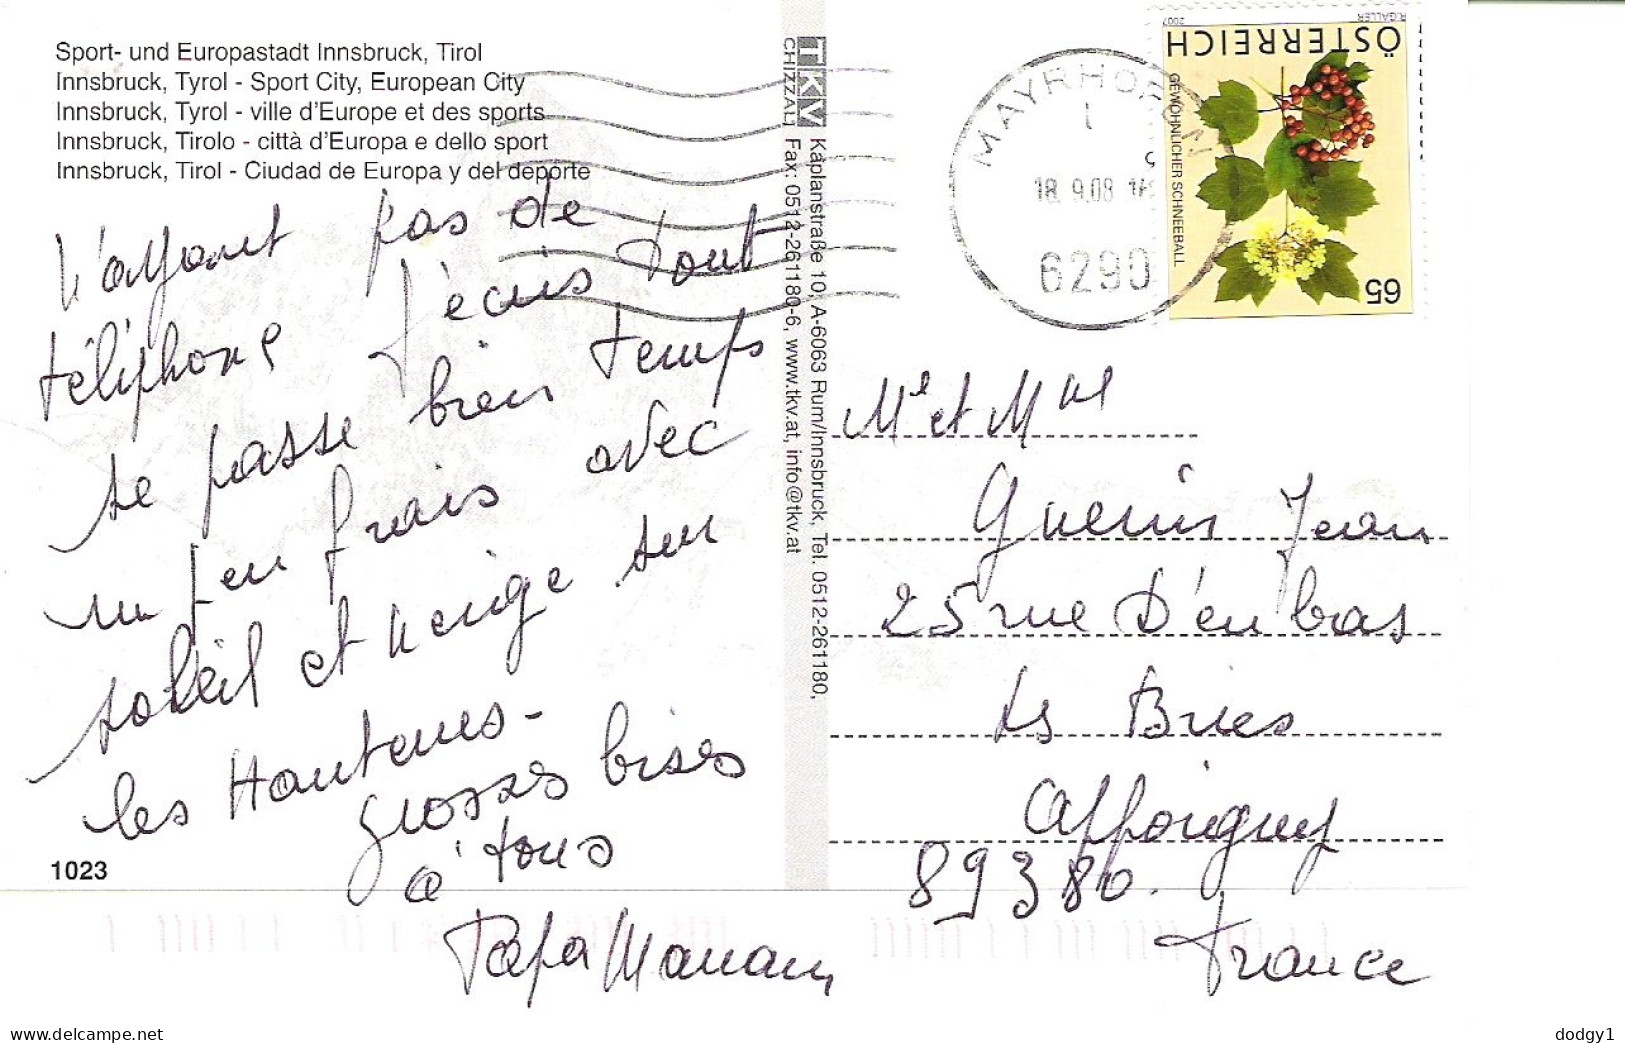 Sport- und Europastadt Innsbruck, Tirol
Innsbruck, Tyrol - Sport City, European City
Innsbruck, Tyrol - ville d'Europe et des sports
Innsbruck, Tirolo - città d'Europa e dello sport
Innsbruck, Tirol - Ciudad de Europa y del deporte
N'ayant pas de
téléphone j'écris tout
se passe bien temps
un peu frais avec
soleil et neige sur
les Hauteurs-
grosses bises
à tous
Papa Maman
1023
TKV
CHIZZALI
Kaplanstraße 10, A-6063 Rum/Innsbruck, Tel. 0512-261180,
Fax: 0512-261180-6, www.tkv.at, info@tkv.at
MAYRHOFEN
18. 9.08
6290
R.GALLER
2007
ÖSTERREICH
GEWÖHNLICHER SCHNEEBALL
65
Mr et Mme
Guerin Jean
25 rue D'en bas
Les Bries
Appoigny
89380.
France
delcampe.net
dodgy1